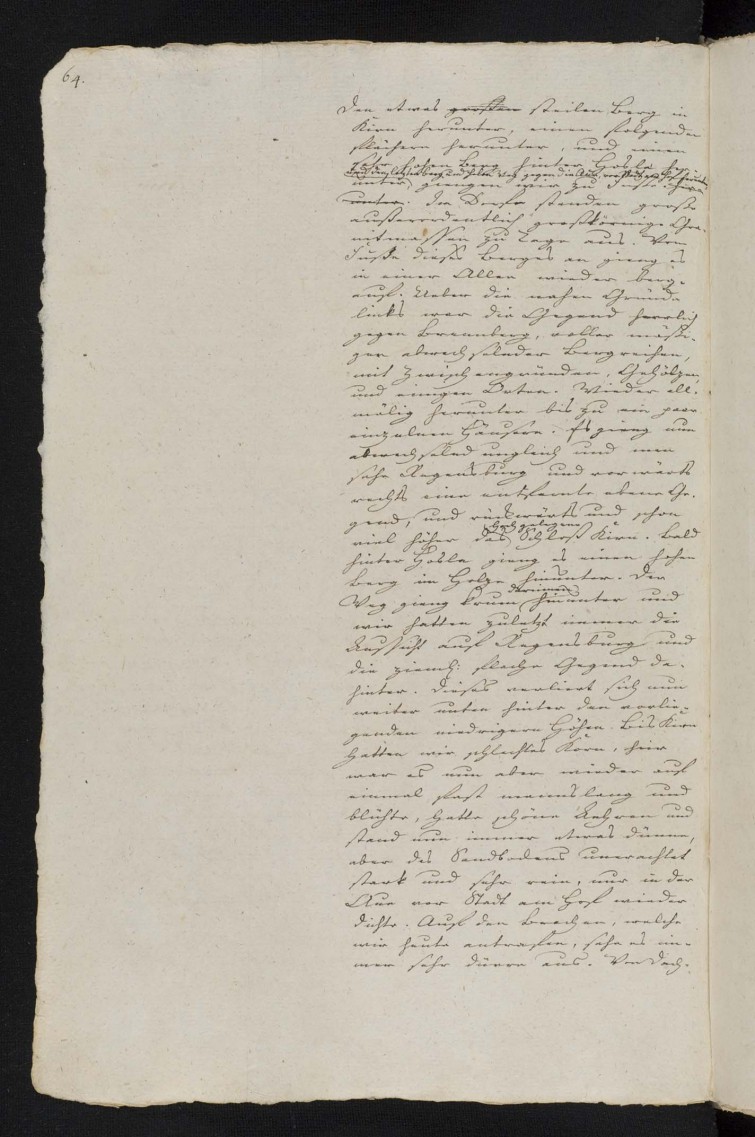 64.
den etwas großen steilen Berg in
Kirn herunter, einen folgenden
flächern herunter, und einen
sehr hohen Berg hinter Hosla her-
unter giengen wir zu Fuße.
unter. Im Dorfe standen große
außerordentlich großkörnige Gra-
nitmassen zu Tage aus. Vom
Fuße dieses Berges an gieng es
in einer Allee wieder berg-
auf. Ueber die nahen Gründe
links war die Gegend herrlich
gegen Brennberg, voller mäßi-
ger abwechselnder Bergreihen,
mit Zwischengründen, Gehölzen,
und einigen Orten. Wieder all-
mälig herunter bis zu ein paar
einzelnen Häusern. Es gieng nun
abwechselnd ungleich und man
sahe Regensburg und vorwärts
rechts eine entfernte ebene Ge-
gend, und rückwärts und schon
hochgelegene
viel höher das Schloß Kirn. Bald
hinter Hosla gieng es einen hohen
Berg im Holze hinunter. Der
Weg gieng krum hinunter und
wir hatten zuletzt immer die
Aussicht auf Regensburg und
die ziemL: flache Gegend da-
hinter. Dieses verliert sich nun
weiter unten hinter den vorlie-
genden niedrigern Höhen. Bis Kirn
hatten wir schlechtes Korn, hier
war es nun aber wieder auf
einmal fast mannslang und
blühte, hatte schöne Aehren und
stand nun immer etwas dünne,
aber des Sandbodens unerachtet
stark und sehr rein, nur in der
Aue vor Stadt am Hof wieder
dichte. Auf den Brachen, welche
wir heute antrafen, sahe es im-
mer sehr dürre aus. Von Dech-